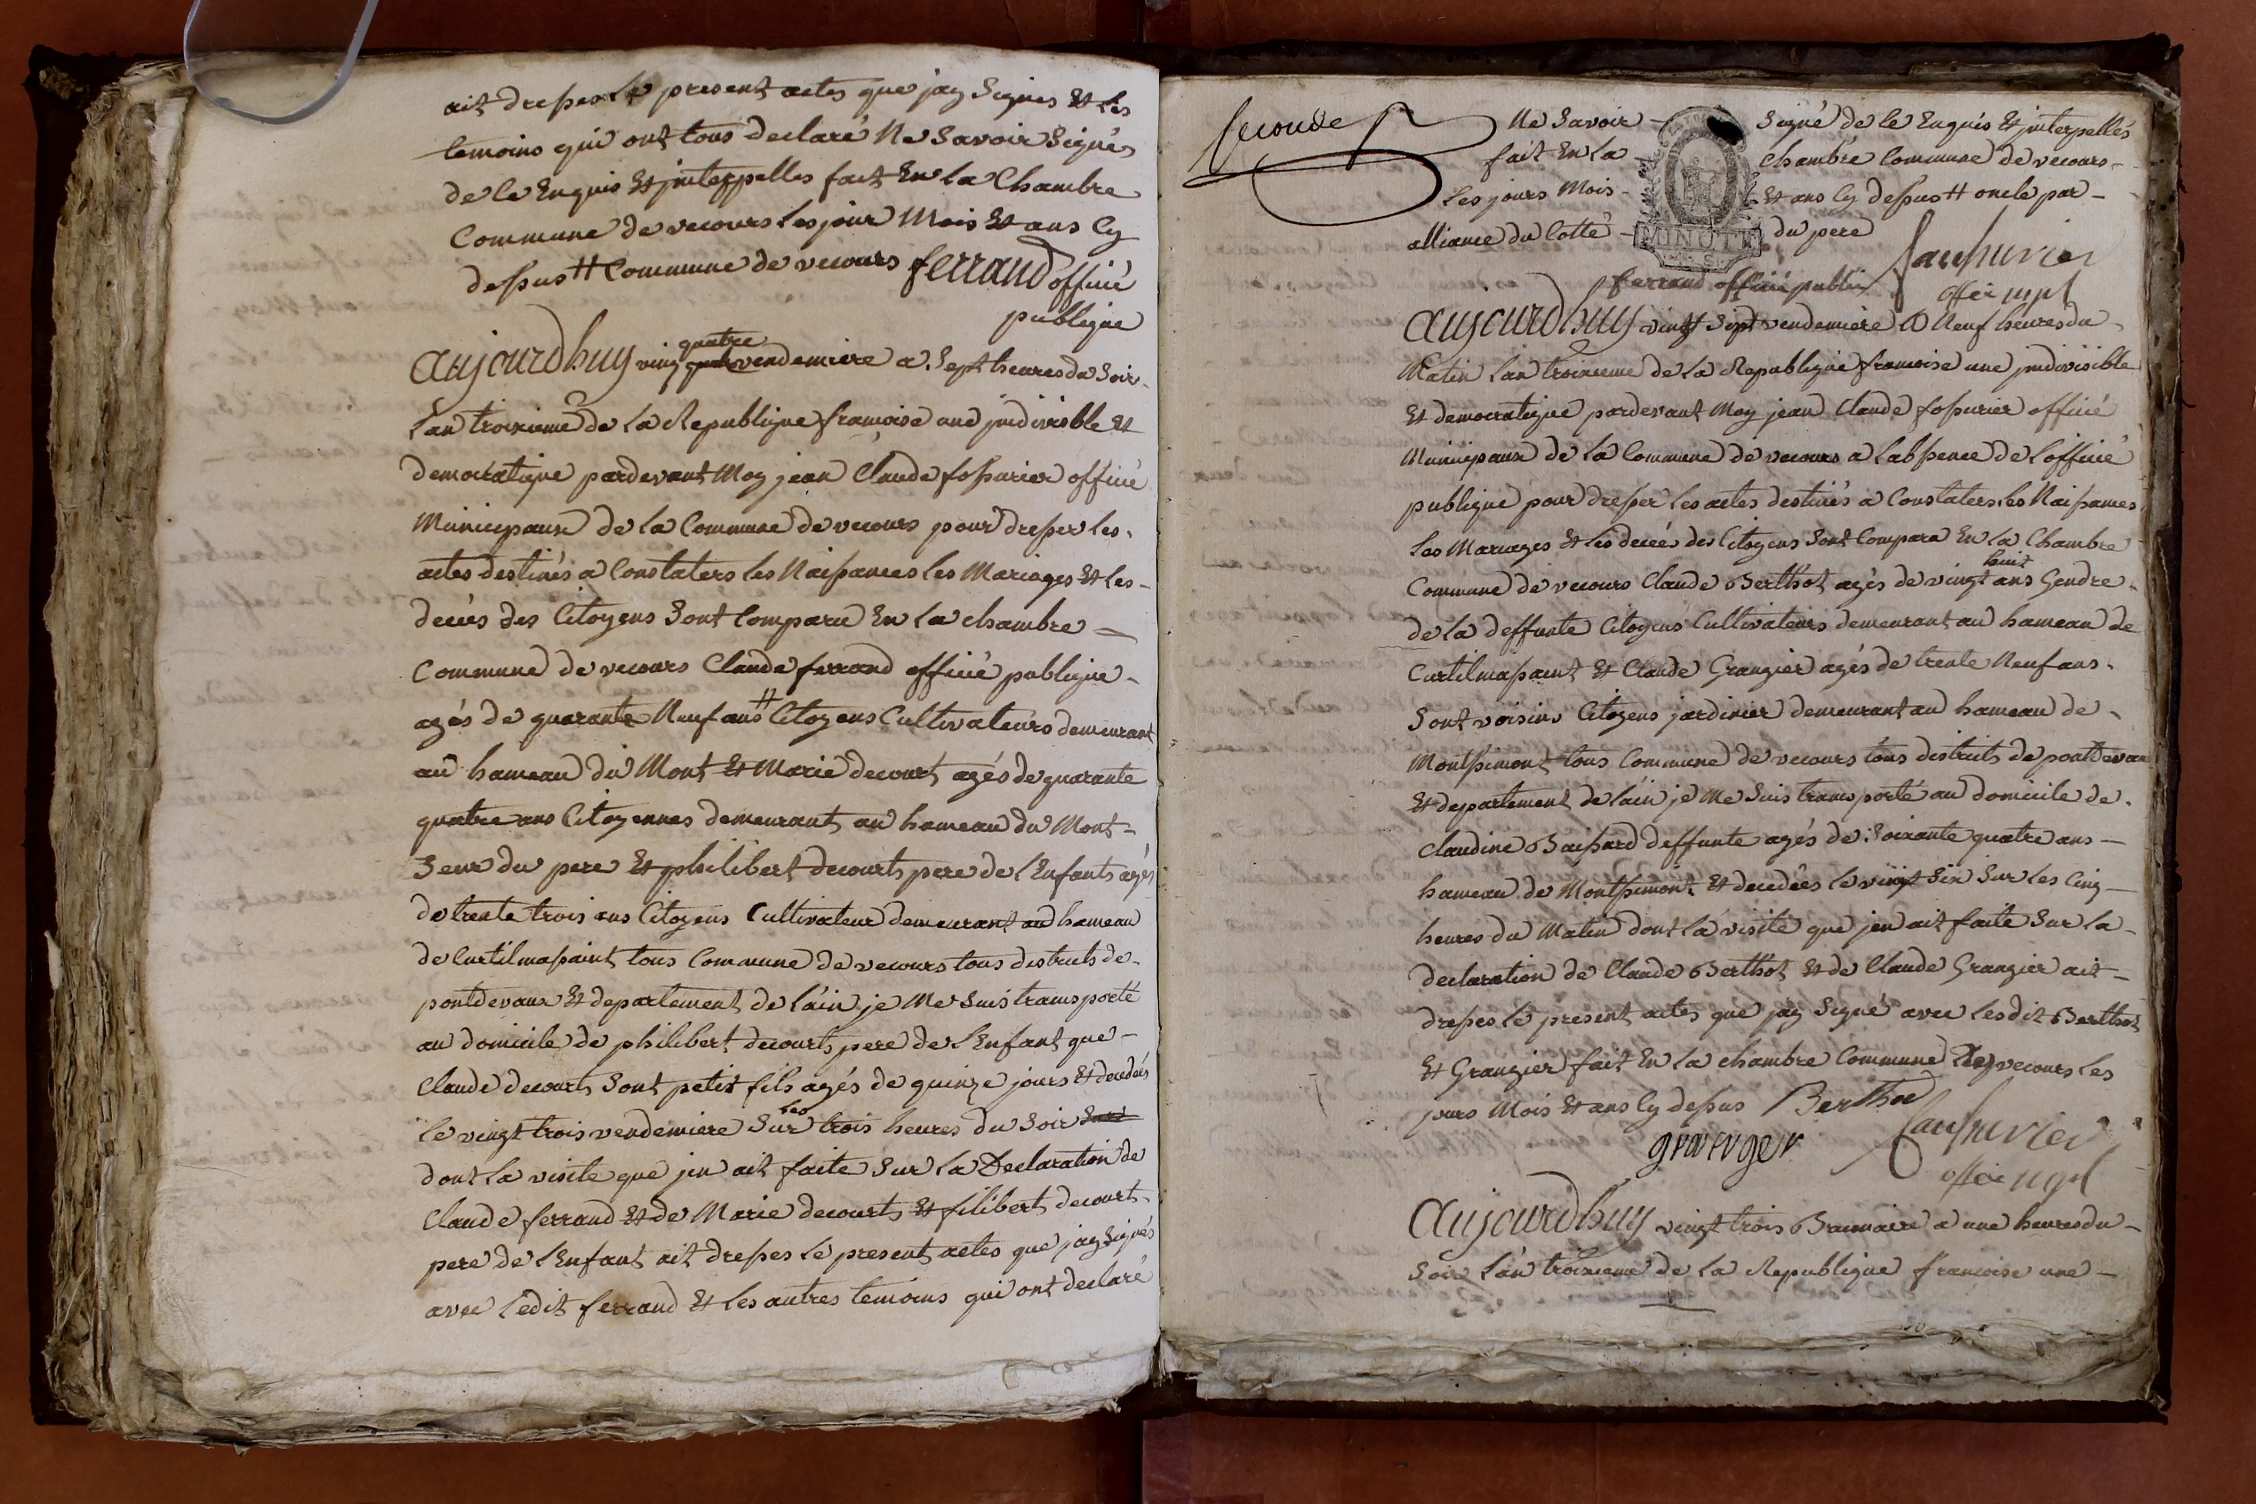 ait dresses le present actes que jay Signes Et les
temoins qui ont tous declaré Ne Savoir Signés
de ce Enquis Et jnterppelles fait En la Chambre
Commune de vecours les jour Mois Et ans Cy
dessus # Commune de vecours ferrand officié
publique
Aujourdhuy ving quatre vendemiere a Sept heures du Soir
Lan troixieme de la Republique francoise une jndivisible Et
democratique pardevant Moy jean Claude fossurier officié
Municipaux de la Commune de vecours pour dresser les
actes destinés a Constaters les Naissances les Mariages Et les
decées des Citoyens Sont Comparu En la chambre
Commune de vecours Claude ferrand officié publique
agés de quarante Neuf ans # Citoyens Cultivateurs demeurant
au hameau du Mont Et Marie decourt agés de quarante
quatre ans Citoyennes demeurant au hameau du Mont
Seur du pere Et philibert decourt pere de l'Enfants agés
de trente trois ans Citoyens Cultivateur demeurant au hameau
de Curtilmassaint tous Commune de vecours tous distructs de
pontdevaux Et departement de l'ain je Me Suis transporté
au domicile de philibert decourt pere de l'Enfant que
Claude decourt Sont petit fils agés de quinze jours Et decedés
le vingt trois vendemiere Sur les trois heures du Soir
dont la visite que jen ait faite Sur la Declaration de
Claude ferrand Et de Marie decourt Et filibert decourt
pere de l'Enfant ait dresses le present actes que jay Signés
avec ledit ferrand Et les autres temoins qui ont declaré
Seconde
Ne Savoir Signé de ce Enquis Et jnterpellés
fait En la Chambre Commune de vecours
Les jours Mois Et ans Cy dessus # oncle par
alliance du Cotté du pere
MINUTE
ferrand officié public faussurier
offié mpl
Aujourdhuy vingt Sept vendemiere a Neuf heures du
Matin Lan troixieme de la Republique francoise une jndivisible
Et democratique pardevant Moy jean Claude fossurier officié
Municipaux de la Commune de vecours a Labsence de l'officié
publique pour dresser les actes destinés a Constaters les Naissances
Les Mariages Et les decées des Citoyens Sont Comparu En la Chambre
Commune de vecours Claude Berthot agés de vingt huit ans Gendre
de la deffunte Citoyens Cultivateurs demeurant au hameau de
Curtilmassaint Et Claude Grangier agés de trente Neuf ans
Sont voisins Citoyens jardinier demeurant au hameau de
Montsimont tous Commune de vecours tous distructs de pontdevaux
Et departement de l'ain je Me Suis transporté au domicile de
Claudine Baissard deffunte agés de Soixante quatre ans
hameau de Montsimont Et decedées le vingt Six Sur les Cinq
heures du Matin dont la visite que jen ait faite Sur la
declaration de Claude Berthot Et de Claude Grangier ait
dresses le present actes que jay Signé avec lesdit Berthot
Et Grangier fait En la chambre Commune de vecours Les
jours Mois Et ans Cy dessus Berthod
granger faussurier
offié mpl
Aujourdhuy vingt trois Brumaire a une heures du
Soir Lan troixieme de la Republique francoise une